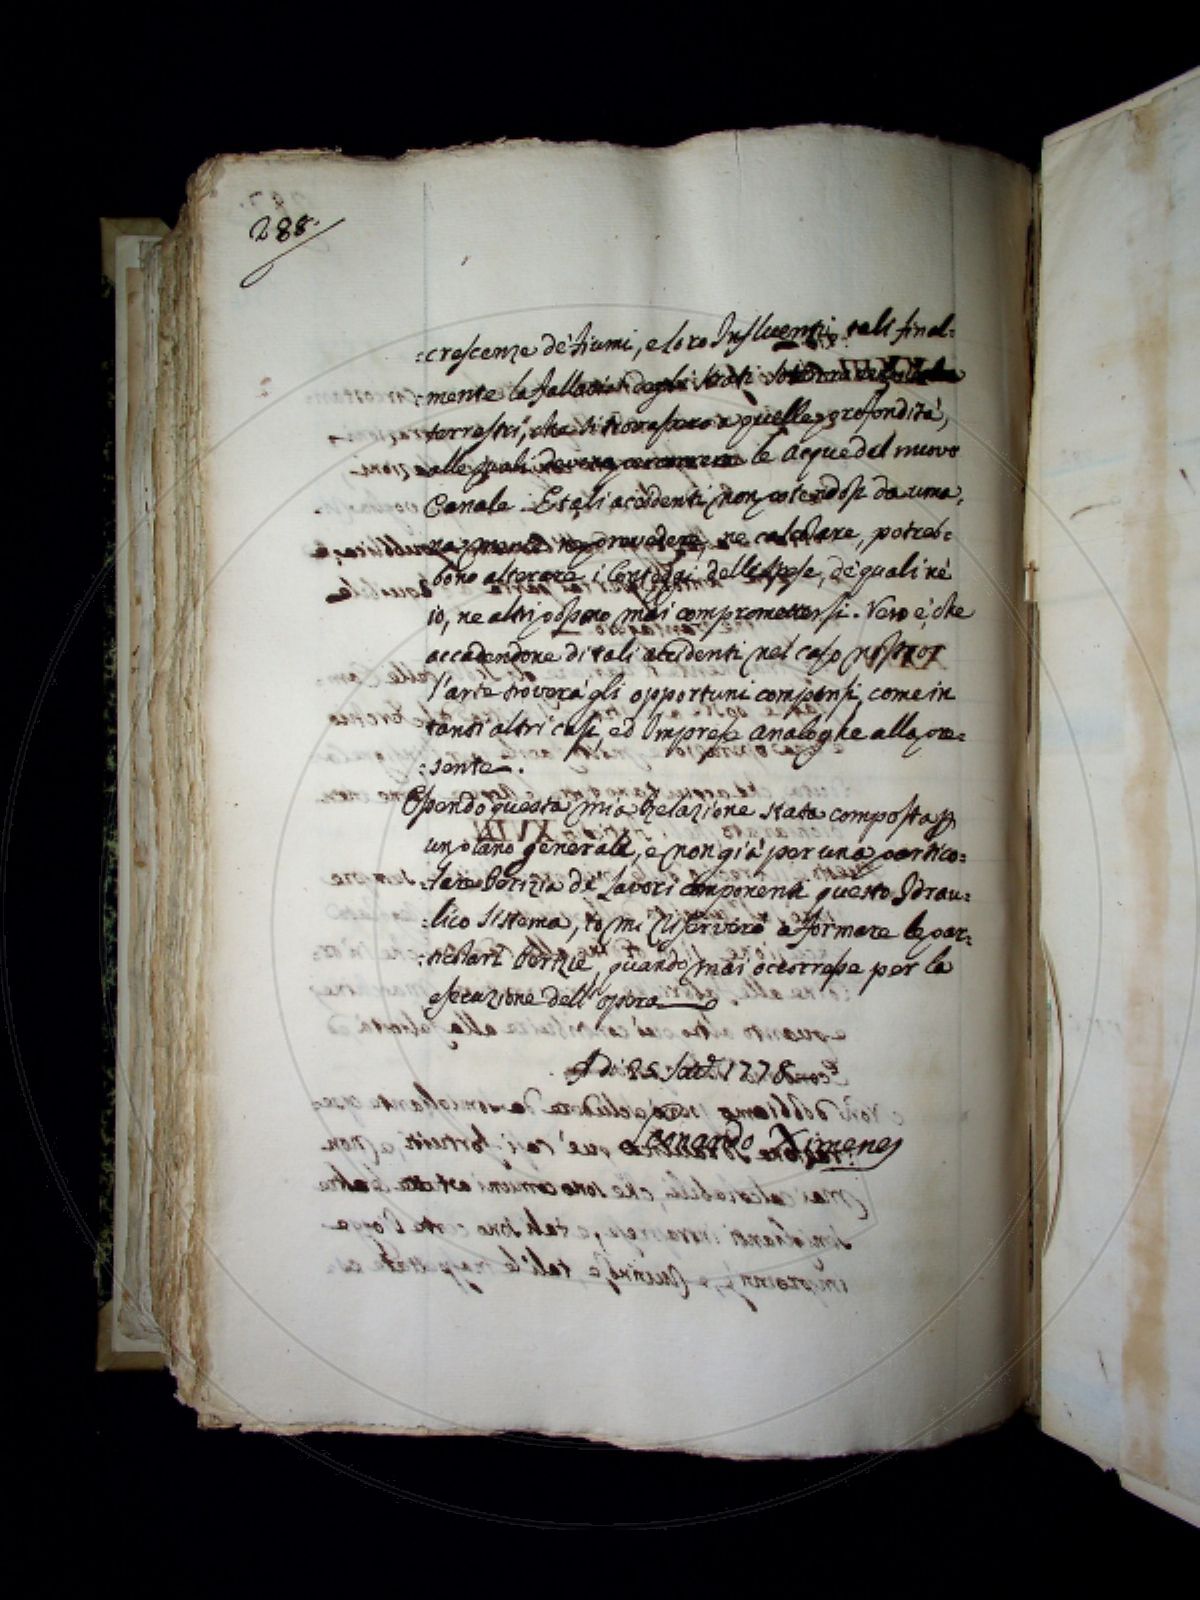 288.
:crescenze de' fiumi, e loro Influenti, tali final:
:mente la fallacia degli strati
terrestri, che si trovassero a quelle profondità,
alle quali le acque del nuovo
Canale. E tali accidenti non potendosi da uma:
na mente nè prevedere, ne calcolare, potreb:
:bono alterare i Conteggi delle spese, de' quali nè
io, ne altri possono mai compromettersi. Vero è, che
accadendone di tali accidenti nel caso nostro
l'arte troverà gli opportuni compensi, come in
tanti altri casi, ed Imprese analoghe alla pre:
:sente.
Essendo questa mia Relazione stata composta p
un piano generale, e non già per una partico:
:lare Perizia de' Lavori componenti questo Idrau:
:lico Sistema, io mi riserverò a formare le par:
:ticolari Perizie, quando mai occorresse per la
esecuzione dell'opera
A dì 25. 1778.
Leonardo Ximenes